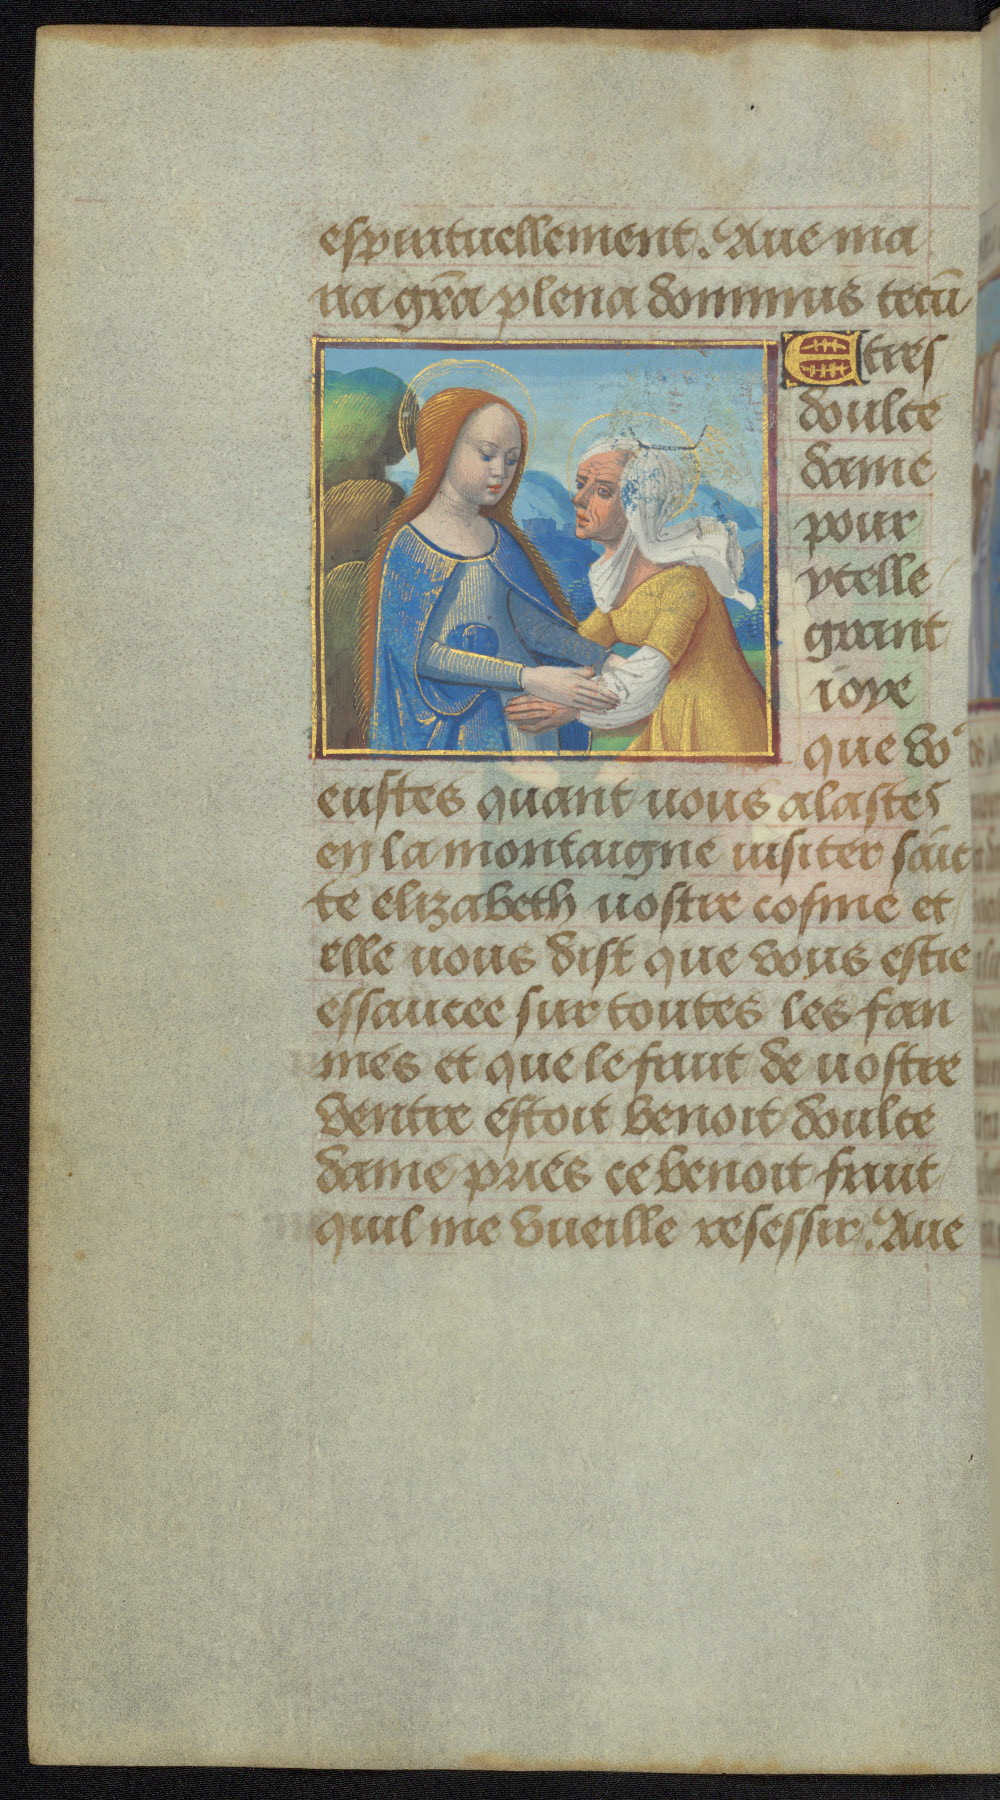 espirituellement. Aue ma
ria gr̄a plena dominus tecū
E tres
doulce
dame
pour
ycelle
grant
ioye
que vo᷒
eustes quant uous alastes
en la montaigne uisiter sainc
te elizabeth uostre cosine et
elle uous dist que vous estie
essaucee sur toutes les fam
mes et que le fruit de uostre
ventre estoit benoit doulce
dame pries ce benoit fruit
quil me vueille resessir. Aue